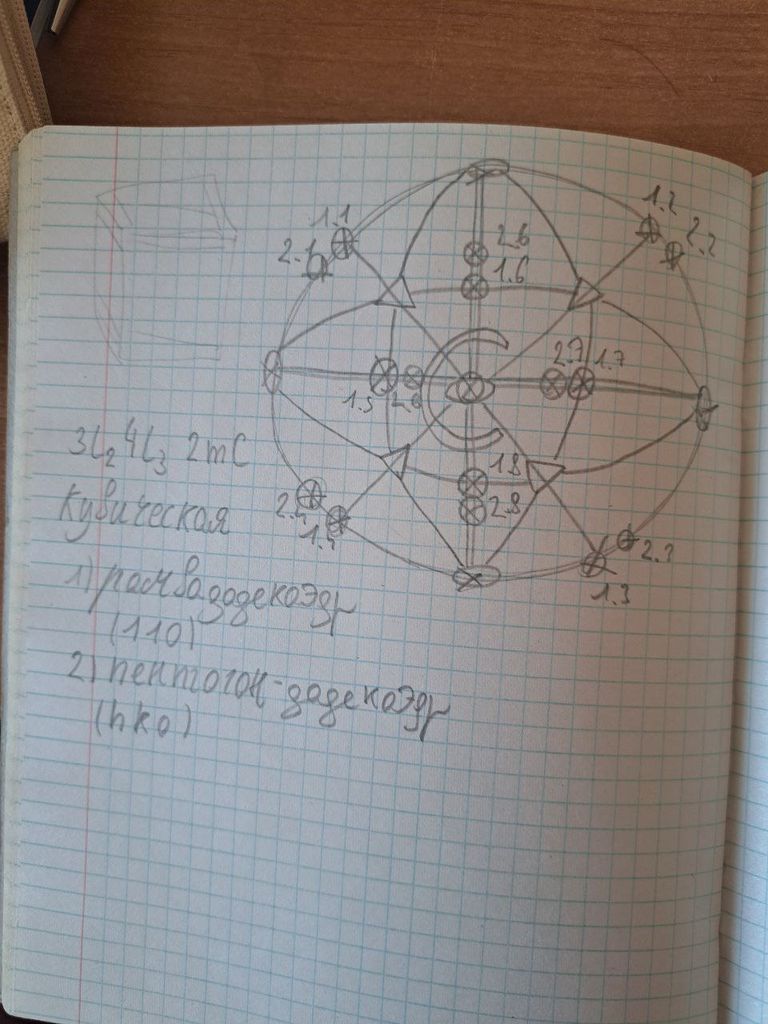 1.2
1.1
2.2
2.6
2.1
1.6
2.7
1.7
1.5
2.6
3L₂ 4L₃ 2mC
1.8
2.4
2.8
Кубическая
1.4
2.3
1.3
1) ромбададекоэдр
(110)
2) пентогон-дадекоэдр
(hk0)